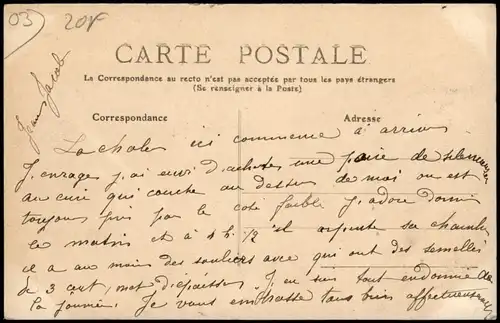 03
20F
Jean Jacob
CARTE POSTALE
La Correspondance au recto n'est pas acceptée par tous les pays étrangers
(Se renseigner à la Poste)
Correspondance
Adresse
La chaleur ici commence à arriver
J'enrages j'ai envi d'acheter une paire de
au curé qui couche au dessus de moi on est
toujours pris par le coté faible J'adore dormir
le matin et à 4h 1/2 il arpente sa chambre
il a au moin des souliers avec qui ont des semelles
de 3 cent, met d'épaisseur J'en suis tout endormie de
la journée. Je vous embrasse tous bien affectueusement